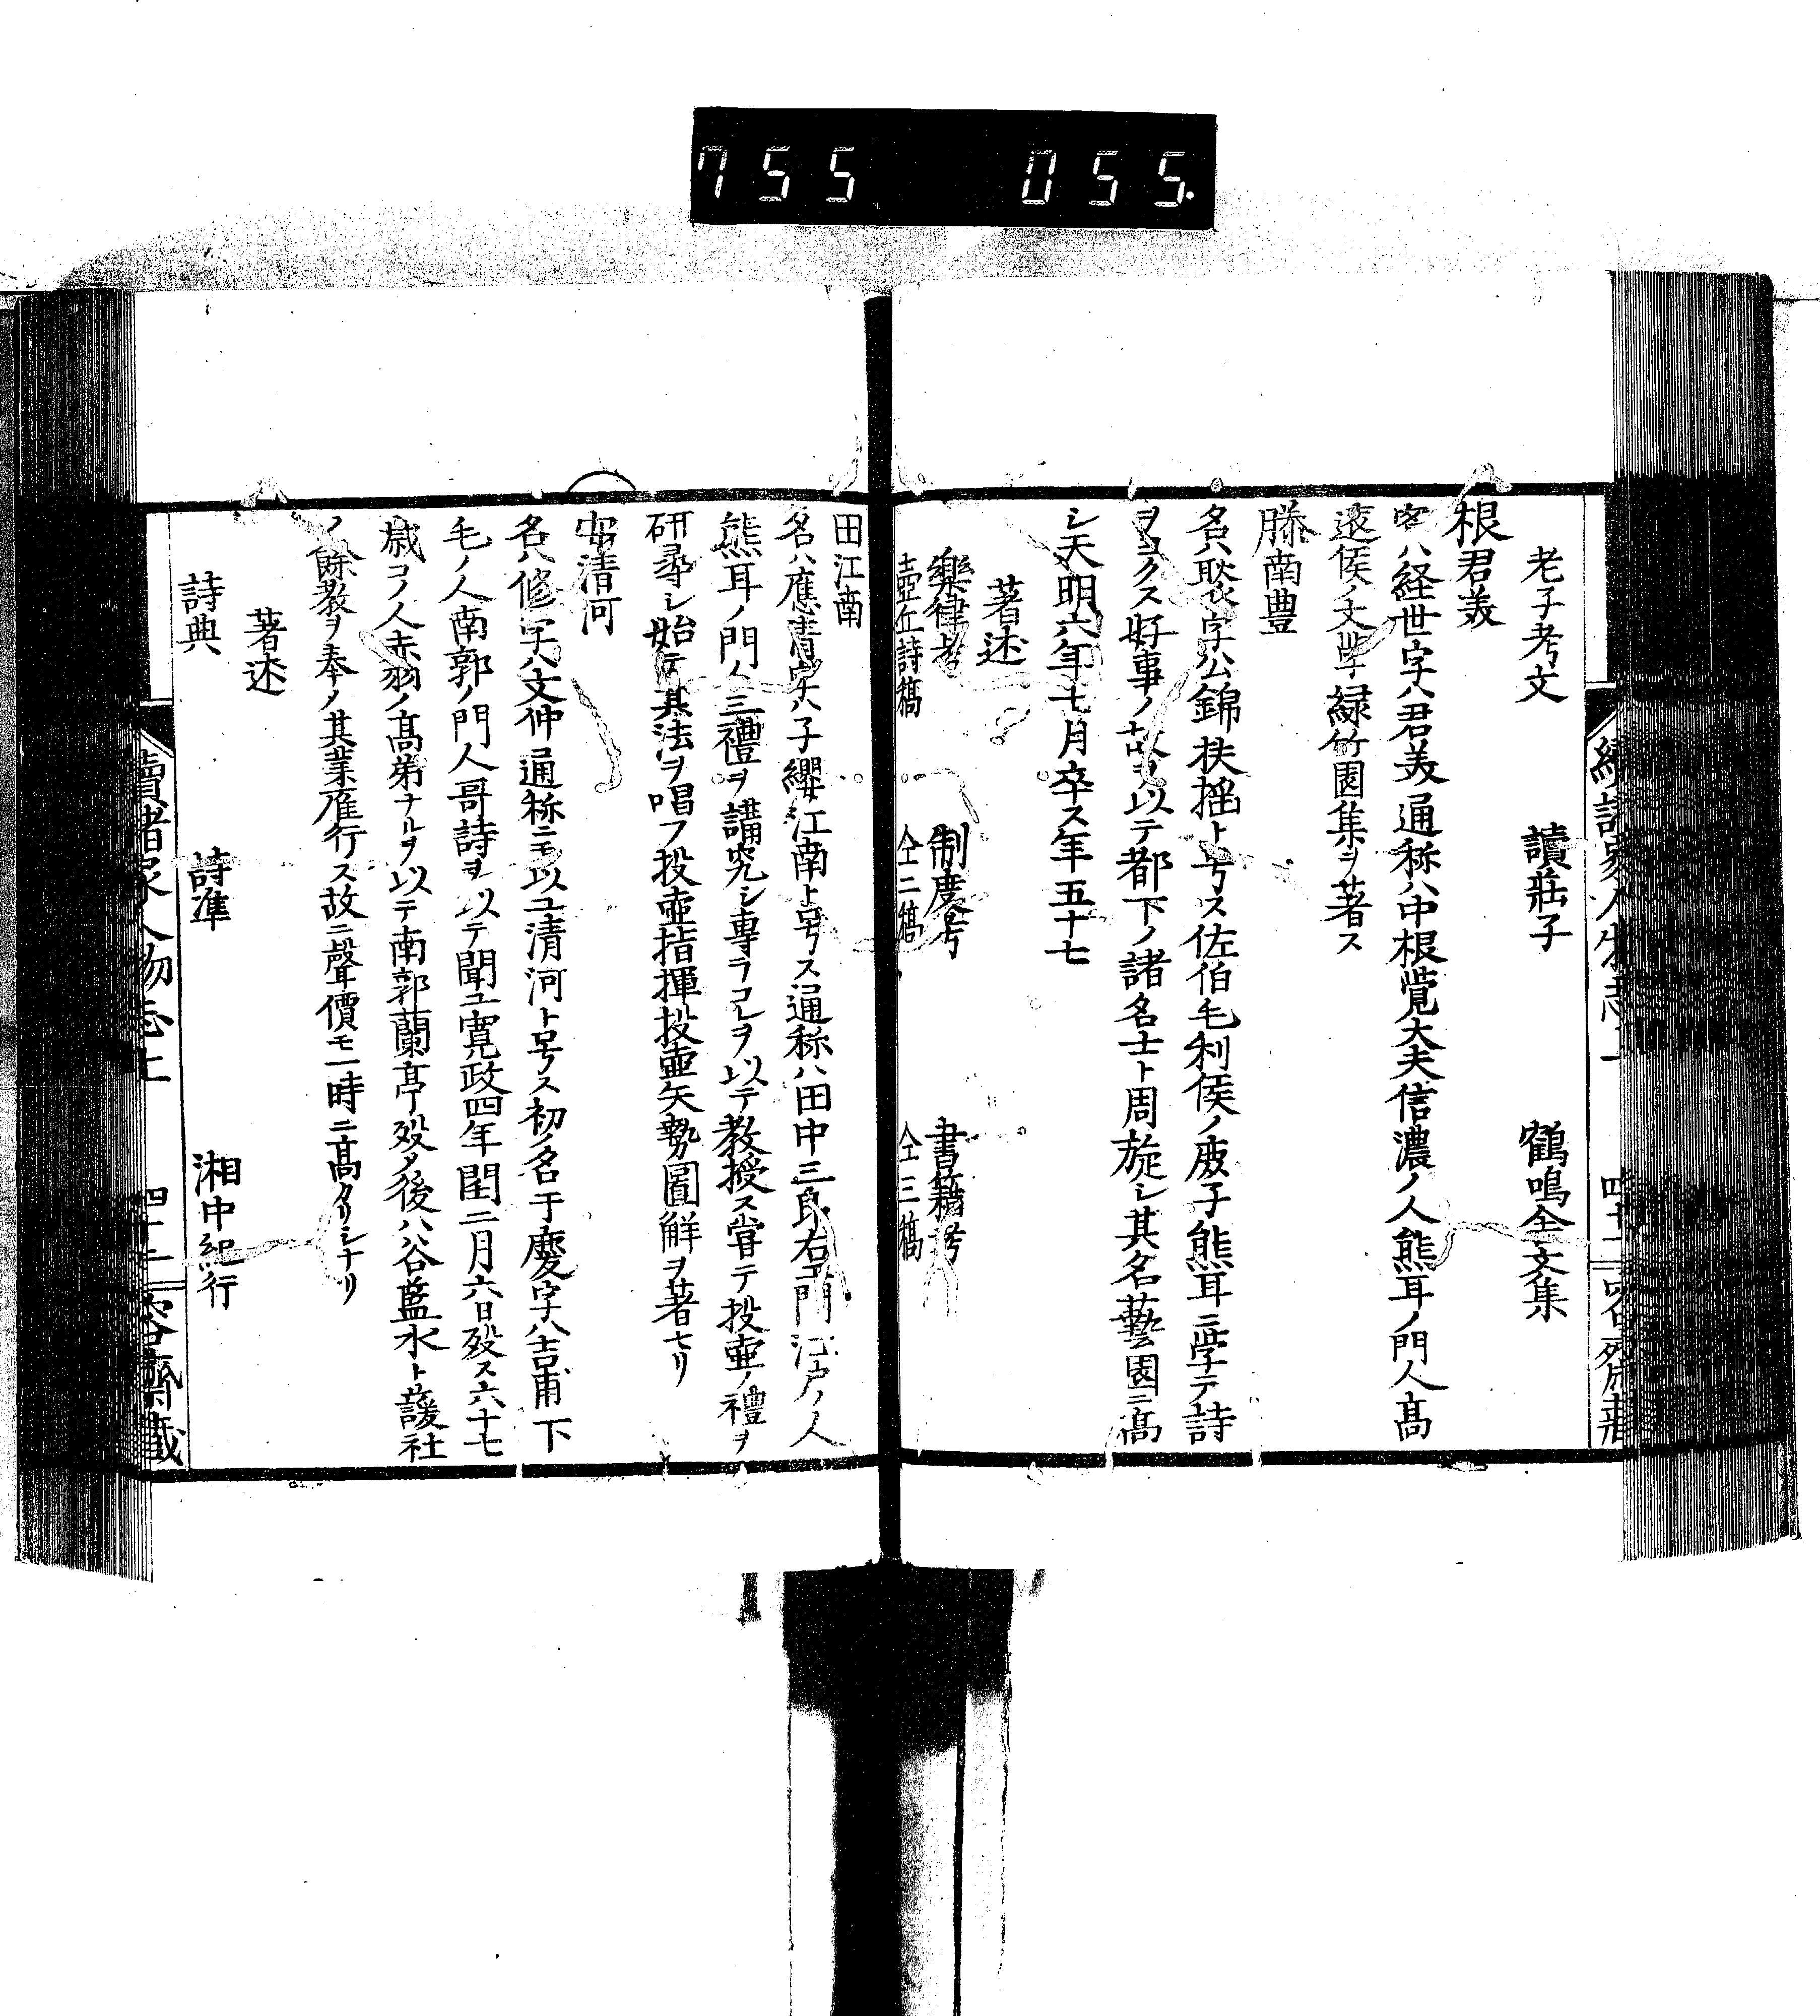 755 055.
老子考文 讀莊子 鶴鳴全文集
根君美
名ハ経世字ハ君美通称ハ中根覚大夫信濃ノ人熊耳ノ門人高
遠侯ノ文学緑竹園集ヲ著ス
滕南豊
名ハ 字公錦扶揺ト号ス佐伯毛利侯ノ庶子熊耳ニ学テ詩
ヲヨクス好事ノ故ヲ以テ都下ノ諸名士ト周旋シ其名藝園ニ高
シ天明六年七月卒ス年五十七
著述
樂律考 制度考 書籍考
壺丘詩稿 仝二稿 仝三稿
田江南
名ハ應清字ハ子纓江南ト号ス通称ハ田中三郎右エ門江戸ノ人
熊耳ノ門人三禮ヲ講究シ専ラコレヲ以テ教授ス甞テ投壷ノ禮ヲ
研尋シ始テ其法ヲ唱フ投壷指揮投壷矢勢圖觧ヲ著セリ
安清河
名ハ修字ハ文仲通称ニモ以ユ清河ト号ス初ノ名于慶字ハ吉甫下
毛ノ人南郭ノ門人哥詩ヲ以テ聞ユ寛政四年閏二月六日歿ス六十七
歳コノ人赤羽ノ高弟ナルヲ以テ南郭蘭亭歿ノ後ハ谷藍水ト蘐社
ノ餘教ヲ奉ノ其業雁行ス故ニ聲價モ一時ニ高カリシナリ
著述
詩典 詩準 湘中紀行
續諸家人物志上 四十二 容齋藏